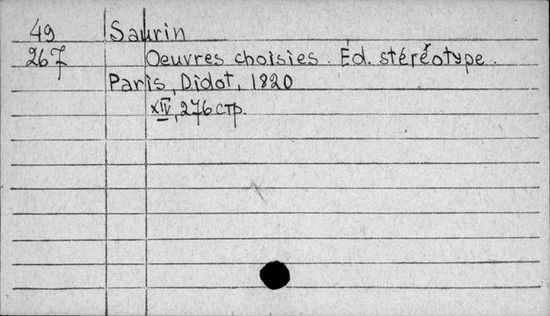 49 Saurin
267 Oeuvres choisies. Éd. stéréotype.
Paris, Didot, 1820
XIV, 276 стр.